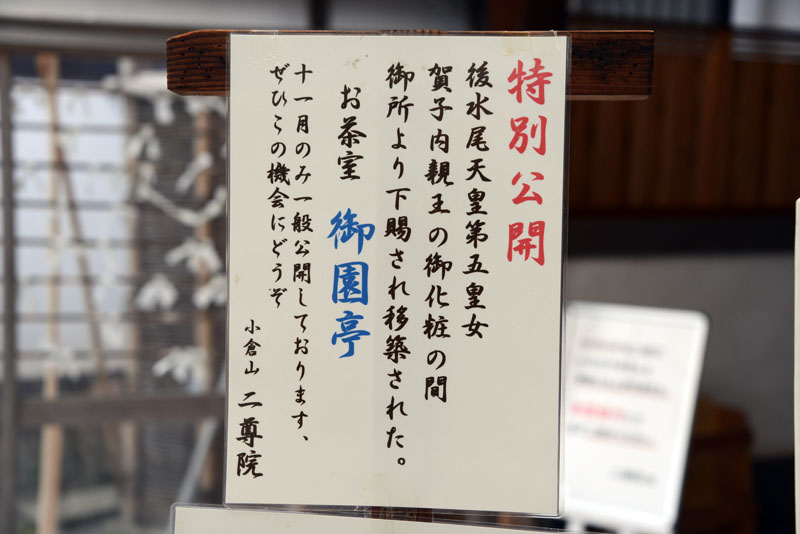 特別公開
後水尾天皇第五皇女
賀子内親王の御化粧の間
御所より下賜され移築された。
お茶室 御園亭
十一月のみ一般公開しております、
ぜひこの機会にどうぞ
小倉山 二尊院